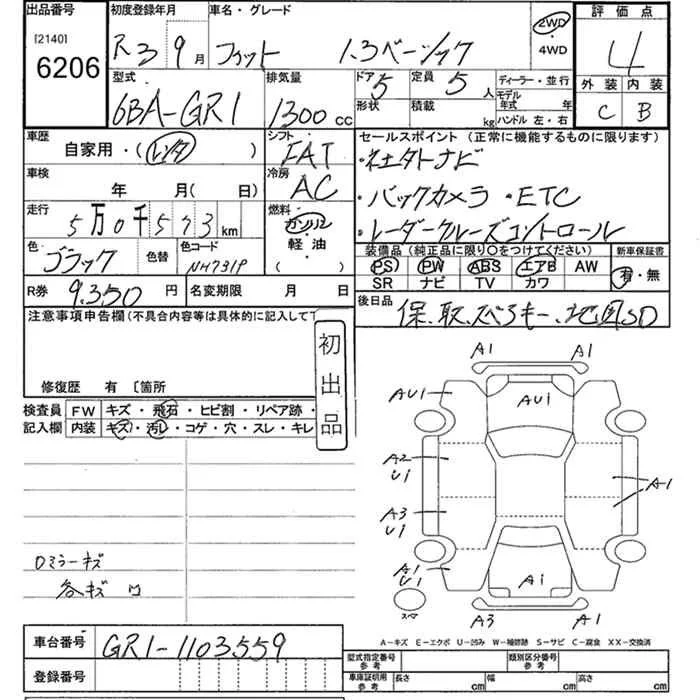 出品番号 初度登録年月 車名・グレード 評価点
[2140]
6206
R3 9月 フィット 1.3ベーシック 2WD・4WD 4
外装 内装
C B
型式 排気量 ドア 定員 ディーラー・並行
6BA-GR1 1300cc 5 5人 モデル年式 年
形状 積載 kg ハンドル 左・右
車歴 シフト セールスポイント(正常に機能するものに限ります)
自家用・(レンタ) FAT ・社外ナビ
車検 年 月(日) 冷房 AC ・バックカメラ ・ETC
走行 燃料 ・レーダークルーズコントロール
5万0千573km ガソリン
軽油
( )
色 色替 色コード
ブラック NH731P
装備品(純正品に限り○をつけてください) 新車保証書
PS PW ABS エアB AW 有・無
SR ナビ TV カワ
R券 9.350円 名変期限 月 日
後日品 保、取、スペアキー、地図SD
注意事項申告欄(不具合内容等は具体的に記入して下
初出品
修復歴 有〔箇所
検査員記入欄 FW キズ・飛石・ヒビ割・リペア跡・
内装 キズ・汚レ・コゲ・穴・スレ・キレ
A1 A1
AU1 AU1
A2 U1
A1
A3 U1
A1 U1
A1
スペア
A3 A1
ロミラーキズ
各キズ凹
A-キズ E-エクボ U-凹み W-補修跡 S-サビ C-腐食 XX-交換済
車台番号 GR1-1103559
登録番号
型式指定番号 参考 類別区分番号 参考
車庫証明用 参考 長さ cm 幅 cm 高さ cm